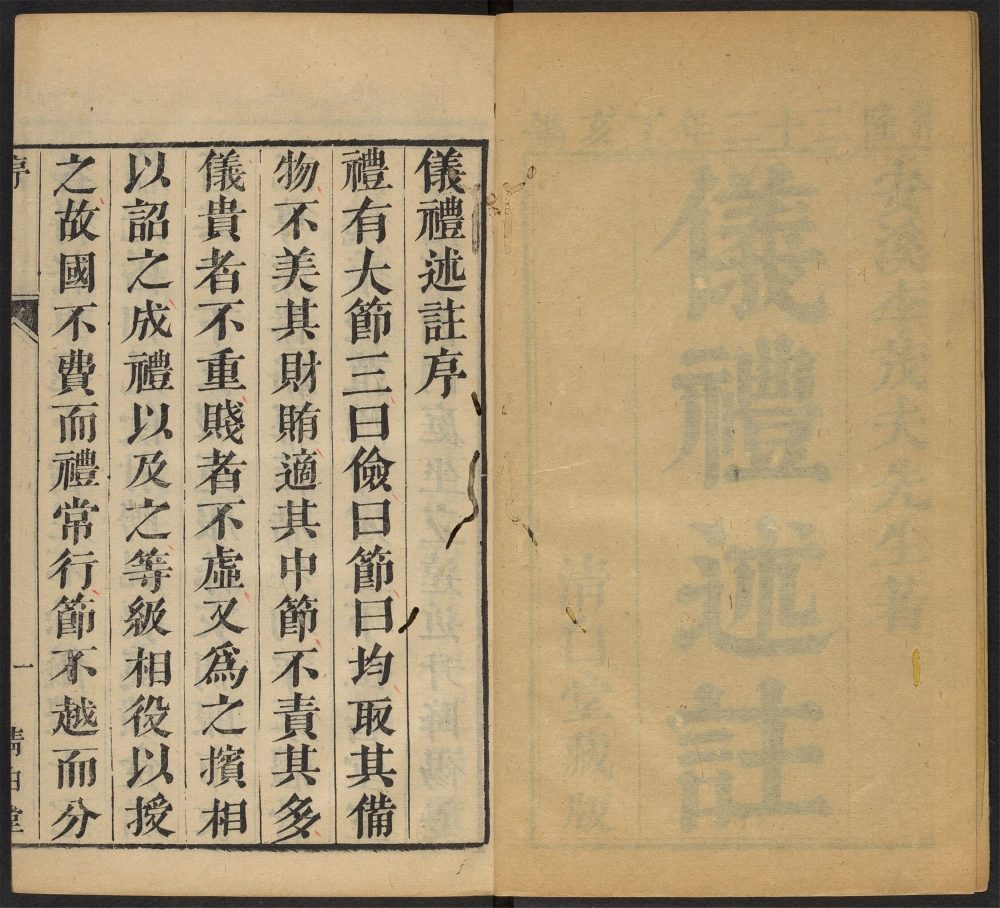 乾隆三十二年丁亥鐫
安溪李茂夫先生著
儀禮述註
清白堂藏版
儀禮述註序
禮有大節三曰儉曰節曰均取其備
物不美其財賄適其中節不責其多
儀貴者不重賤者不虛又爲之擯相
以詔之成禮以及之等級相役以授
之故國不費而禮常行節不越而分
序 一 清白堂